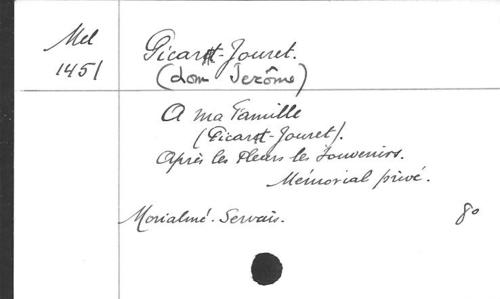 Mel
1451
Picart-Jouret.
(dom Jerôme)
A ma Famille
(Picart-Jouret).
Après les Fleurs les Souvenirs.
Mémorial privé.
Morialmé. Servais.
8o